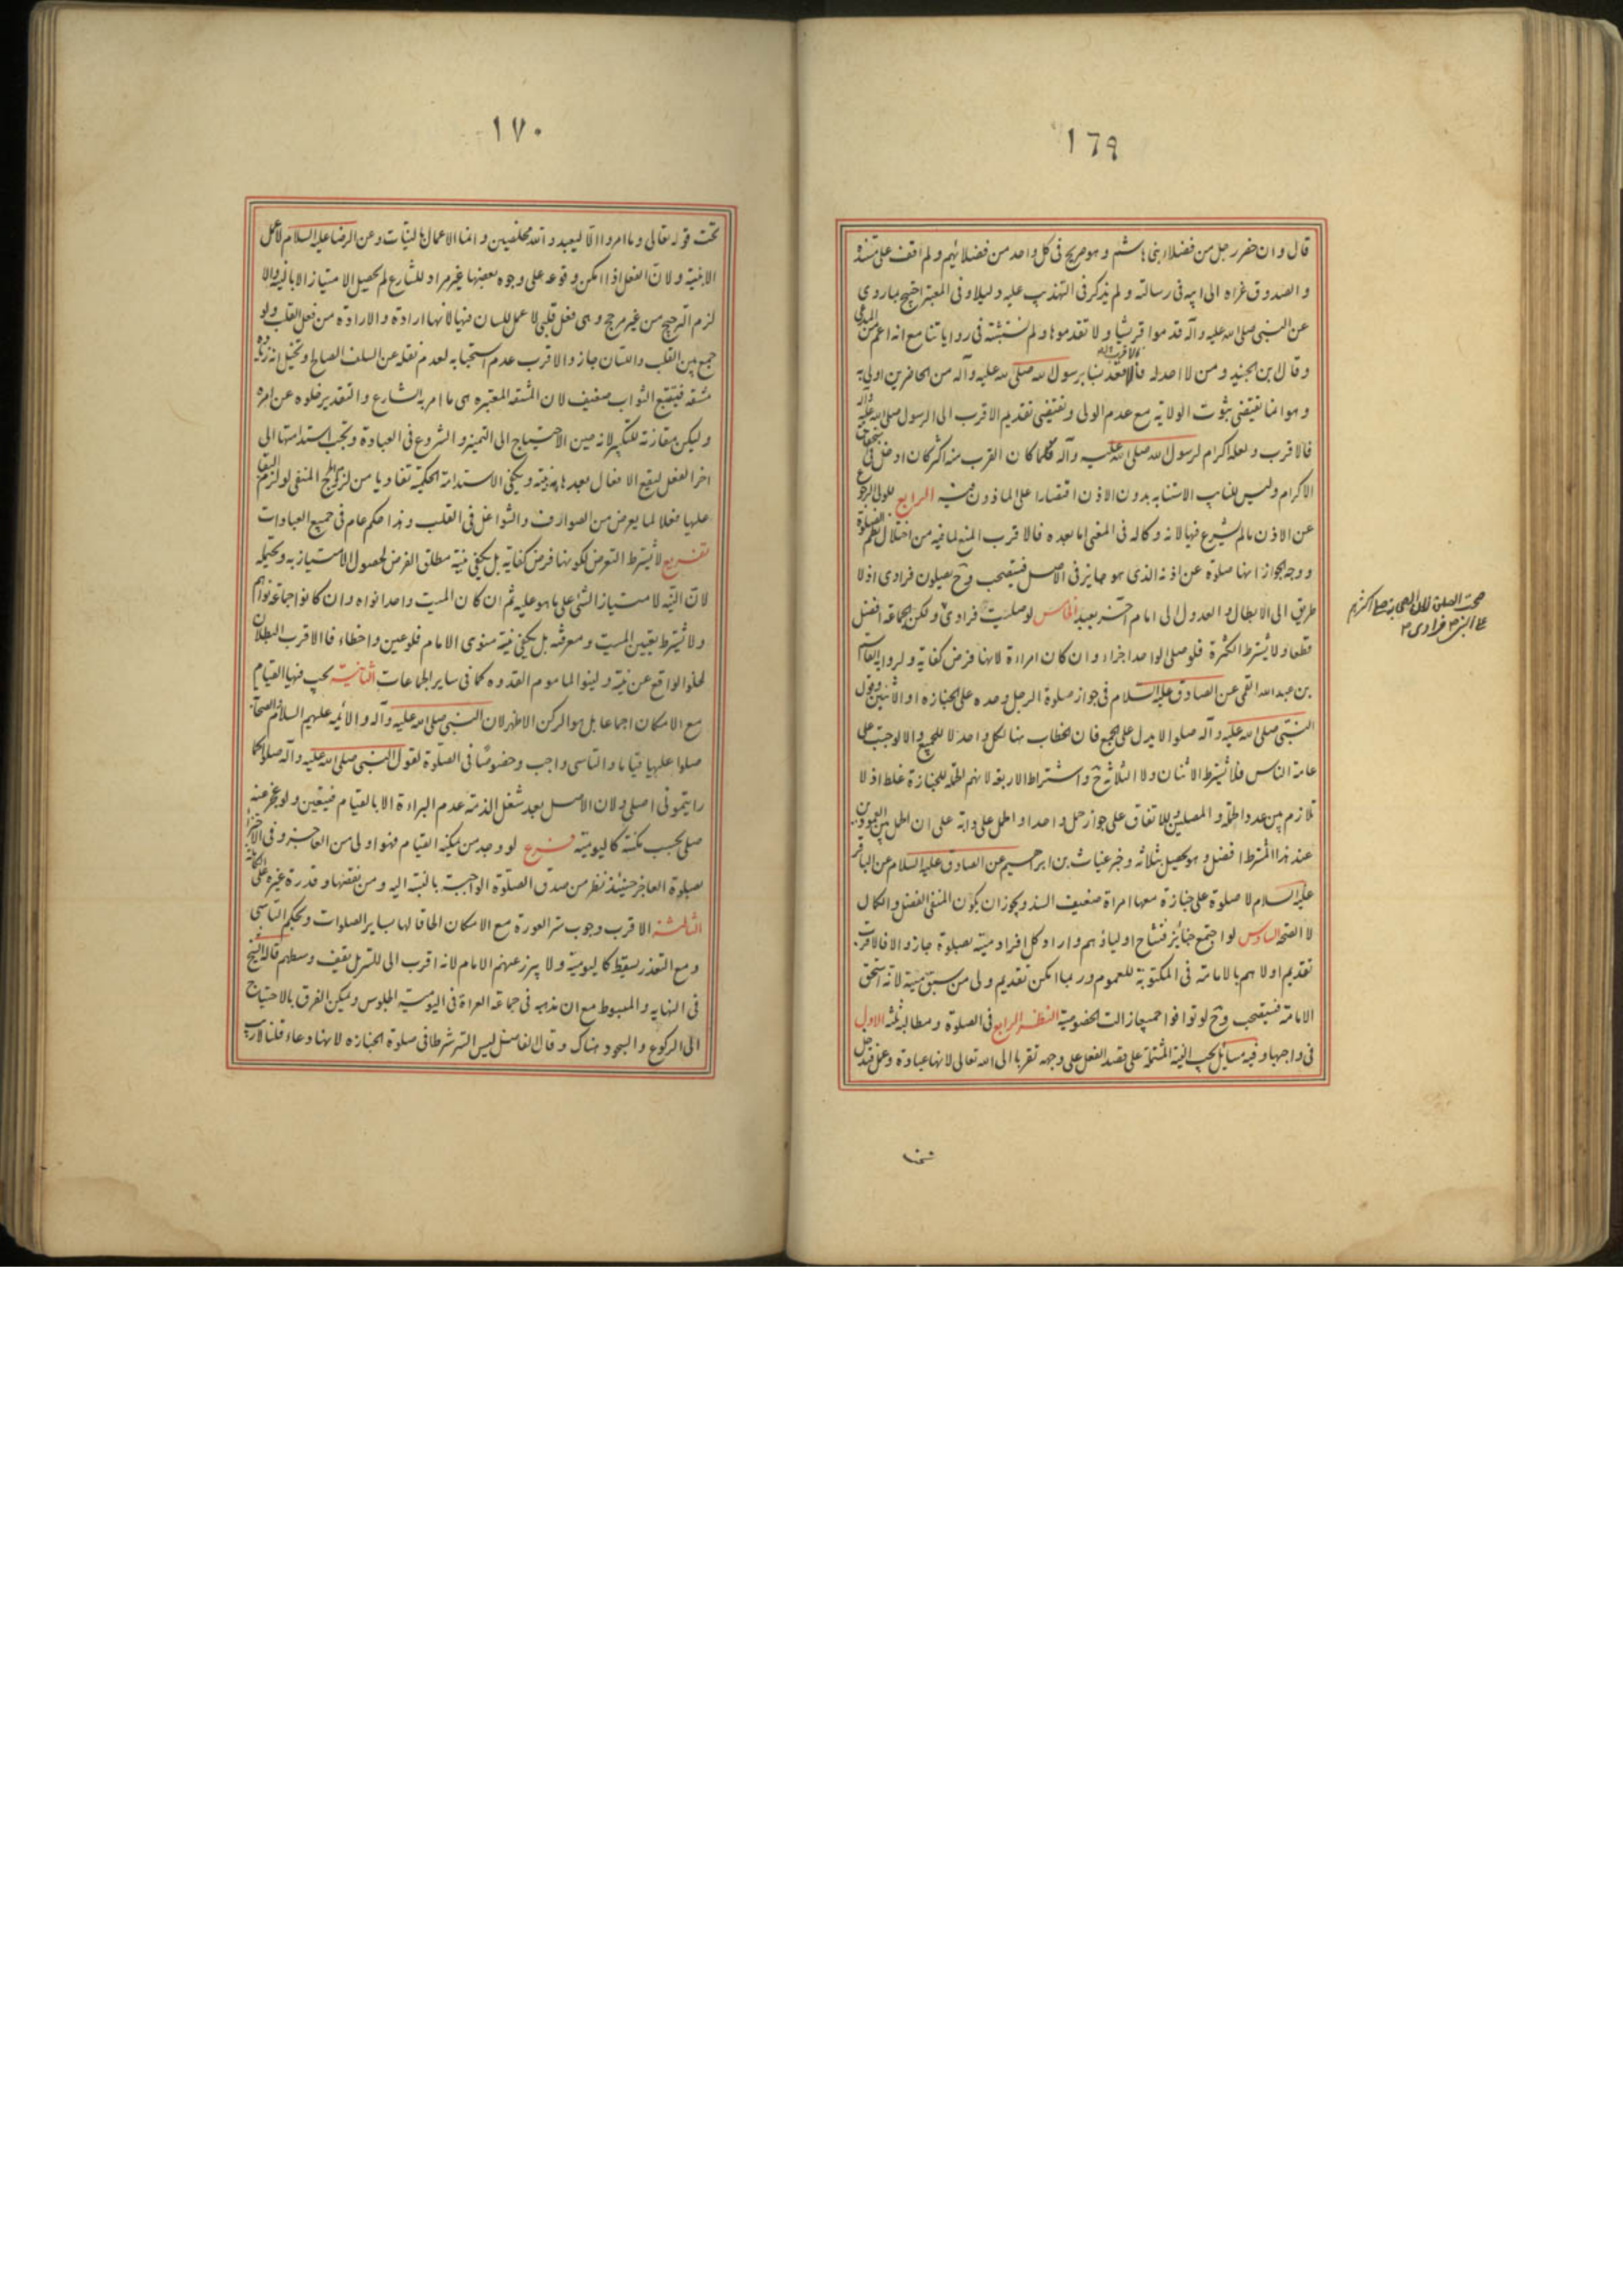 ١٦٩
قال وان حضر رجل من فضلاء بنى هاشم وهو صريح فى كل واحد من فضلائهم ولم اقف على مستنده
والصدوق عزاه الى ابيه فى رسالته ولم يذكر فى التهذيب عليه دليلا وفى المعتبر احتج بما روى
عن النبى صلى الله عليه وآله قدموا قريشا ولا تقدموها ولم نستثبته فى رواياتنا مع انه اعم من المدعى
وقال بن الجنيد ومن لا احد له فالاقعد نسبا برسول الله صلى الله عليه وآله من الحاضرين اولى به
وهو انما يقتضى ثبوت الولاية مع عدم الولى ويقتضى تقديم الاقرب الى الرسول صلى الله عليه وآله
فالاقرب ولعله اكرام لرسول الله صلى الله عليه وآله فكلما كان القرب منه اكثر كان ادخل فى استحقاق
الاكرام وليس للنايب الاستنابه بدون الاذن اقتصارا على الماذون فيه الرابع للولى الرجوع
عن الاذن مالم يشرع فيها لانه وكاله فى المعنى اما بعده فالاقرب المنع لما فيه من اختلال نظم الصلوة
ووجه الجواز انها صلوة عن اذنه الذى هو جايز فى الاصل فيستصحب وح يصلون فرادى اذ لا
طريق الى الابطال و العدول الى امام آخر بعيد الخامس لو صليت فرادى ولكن الجماعة افضل
قطعا ولا يشترط الكثرة فلو صلى الواحد اجزاء وان كان امراءة لانها فرض كفاية ولرواية القاسم
بن عبد الله القمى عن الصادق عليه السلام فى جواز صلوة الرجل وحده على الجنازه او الاثنين وقول
النبى صلى الله عليه وآله صلوا لا يدل على الجمع فان الخطاب هنا لكل واحد لا للجميع والا لوجبت على
عامة الناس فلا يشترط الاثنان ولا الثلاثة ح واشتراط الاربعة لانهم الحملة للجنازة غلط اذ لا
تلازم بين عدد الحملة والمصلين للاتفاق على جواز حمل واحد او الحمل على دابة على ان الحمل بين العمودين
عند هذا المشترط افضل وهو يحصل بثلاثه وخبر غياث بن ابرهيم عن الصادق عليه السلام عن الباقر
عليه السلام لا صلوة على جنازة معها امراة ضعيف السند ويجوز ان يكون المنفى الفضل والكمال
لا الصحة السادس لو اجتمع جنائز فتشاح اولياؤهم واراد كل افراد ميته بصلوة جاز والا فالاقرب
تقديم اولاهم بالامامة فى المكتوبة للعموم وربما امكن تقديم ولى من سبق ميته لانه استحق
الامامة فيستصحب وح لو توافوا جميعا زالت الخصوصية النظر الرابع فى الصلوة ومطالبه ثلثه الاول
فى واجبها وفيه مسائل يجب النية المشتملة على قصد الفعل على وجهه تقربا الى الله تعالى لانها عبادة وعمل فتدخل
١٧٠
تحت قوله تعالى وما امروا الا ليعبدوا الله مخلصين وانما الاعمال بالنيات وعن الرضا عليه السلام لا عمل
الا بنية ولان الفعل اذا امكن وقوعه على وجوه بعضها غير مراد للشارع لم يحصل الامتياز الا بالنية والا
لزم الترجيح من غير مرجح وهى فعل قلبى لا عمل للسان فيها لانها ارادة والارادة من فعل القلب ولو
جمع بين القلب واللسان جاز والاقرب عدم استحبابه لعدم نقله عن السلف الصالح وتخيل انه زيادة
مشقه فيستتبع الثواب ضعيف لان المشقه المعتبره هى ما امر به الشارع والتقدير خلوه عن امره
وليكن مقارنة للتكبير لانه حين الاحتياج الى التميز والشروع فى العبادة ويجب استدامتها الى
اخر الفعل ليقع الافعال بعدها بنية ويكفى الاستدامة الحكمية تفاديا من لزوم الحرج المنفى لو لزم البقا
عليها فعلا لما يعرض من الصوارف والشواغل فى القلب وهذا حكم عام فى جميع العبادات
تفريع لا يشترط التعرض لكونها فرض كفاية بل يكفى نية مطلق الفرض لحصول الامتياز به ويحتمله
لان النية لامتياز الشئ على ما هو عليه ثم ان كان الميت واحدا نواه وان كانوا جماعة نواهم
ولا يشترط تعيين الميت ومعرفته بل يكفى نية منوى الامام فلو عين واخطاء فالاقرب البطلان
لخلو الواقع عن نية ولينوا الماموم القدوه كما فى ساير الجماعات الثانية يجب فيها القيام
مع الامكان اجماعا بل هو الركن الاظهر لان النبى صلى الله عليه وآله والائمه عليهم السلام والصحابة
صلوا عليها قياما والتاسى واجب وخصوصا فى الصلوة لقول النبى صلى الله عليه وآله صلوا كما
رايتمونى اصلى ولان الاصل بعد شغل الذمة عدم البراءة الا بالقيام فيتعين ولو عجز عنه
صلى بحسب مكنته كاليومية فرع لو وجد من يمكنه القيام فهو اولى من العاجز وفى الاجتزاء
بصلوة العاجز حينئذ نظر من صدق الصلوة الواجبة بالنسبة اليه ومن نقصها وقدرة غيره على الكاملة
الثالثة الاقرب وجوب ستر العورة مع الامكان الحاقا لها بساير الصلوات وبحكم التاسى
ومع التعذر يسقط كاليومية ولا يبرز عنهم الامام لانه اقرب الى الستر بل يقف وسطهم قاله الشيخ
فى النهايه والمبسوط مع ان مذهبه فى جماعة العراة فى اليومية الجلوس ويمكن الفرق بالاحتياج
الى الركوع والسجود هناك وقال الفاضل ليس الستر شرطا فى صلوة الجنازه لانها دعاء قلنا لاريب